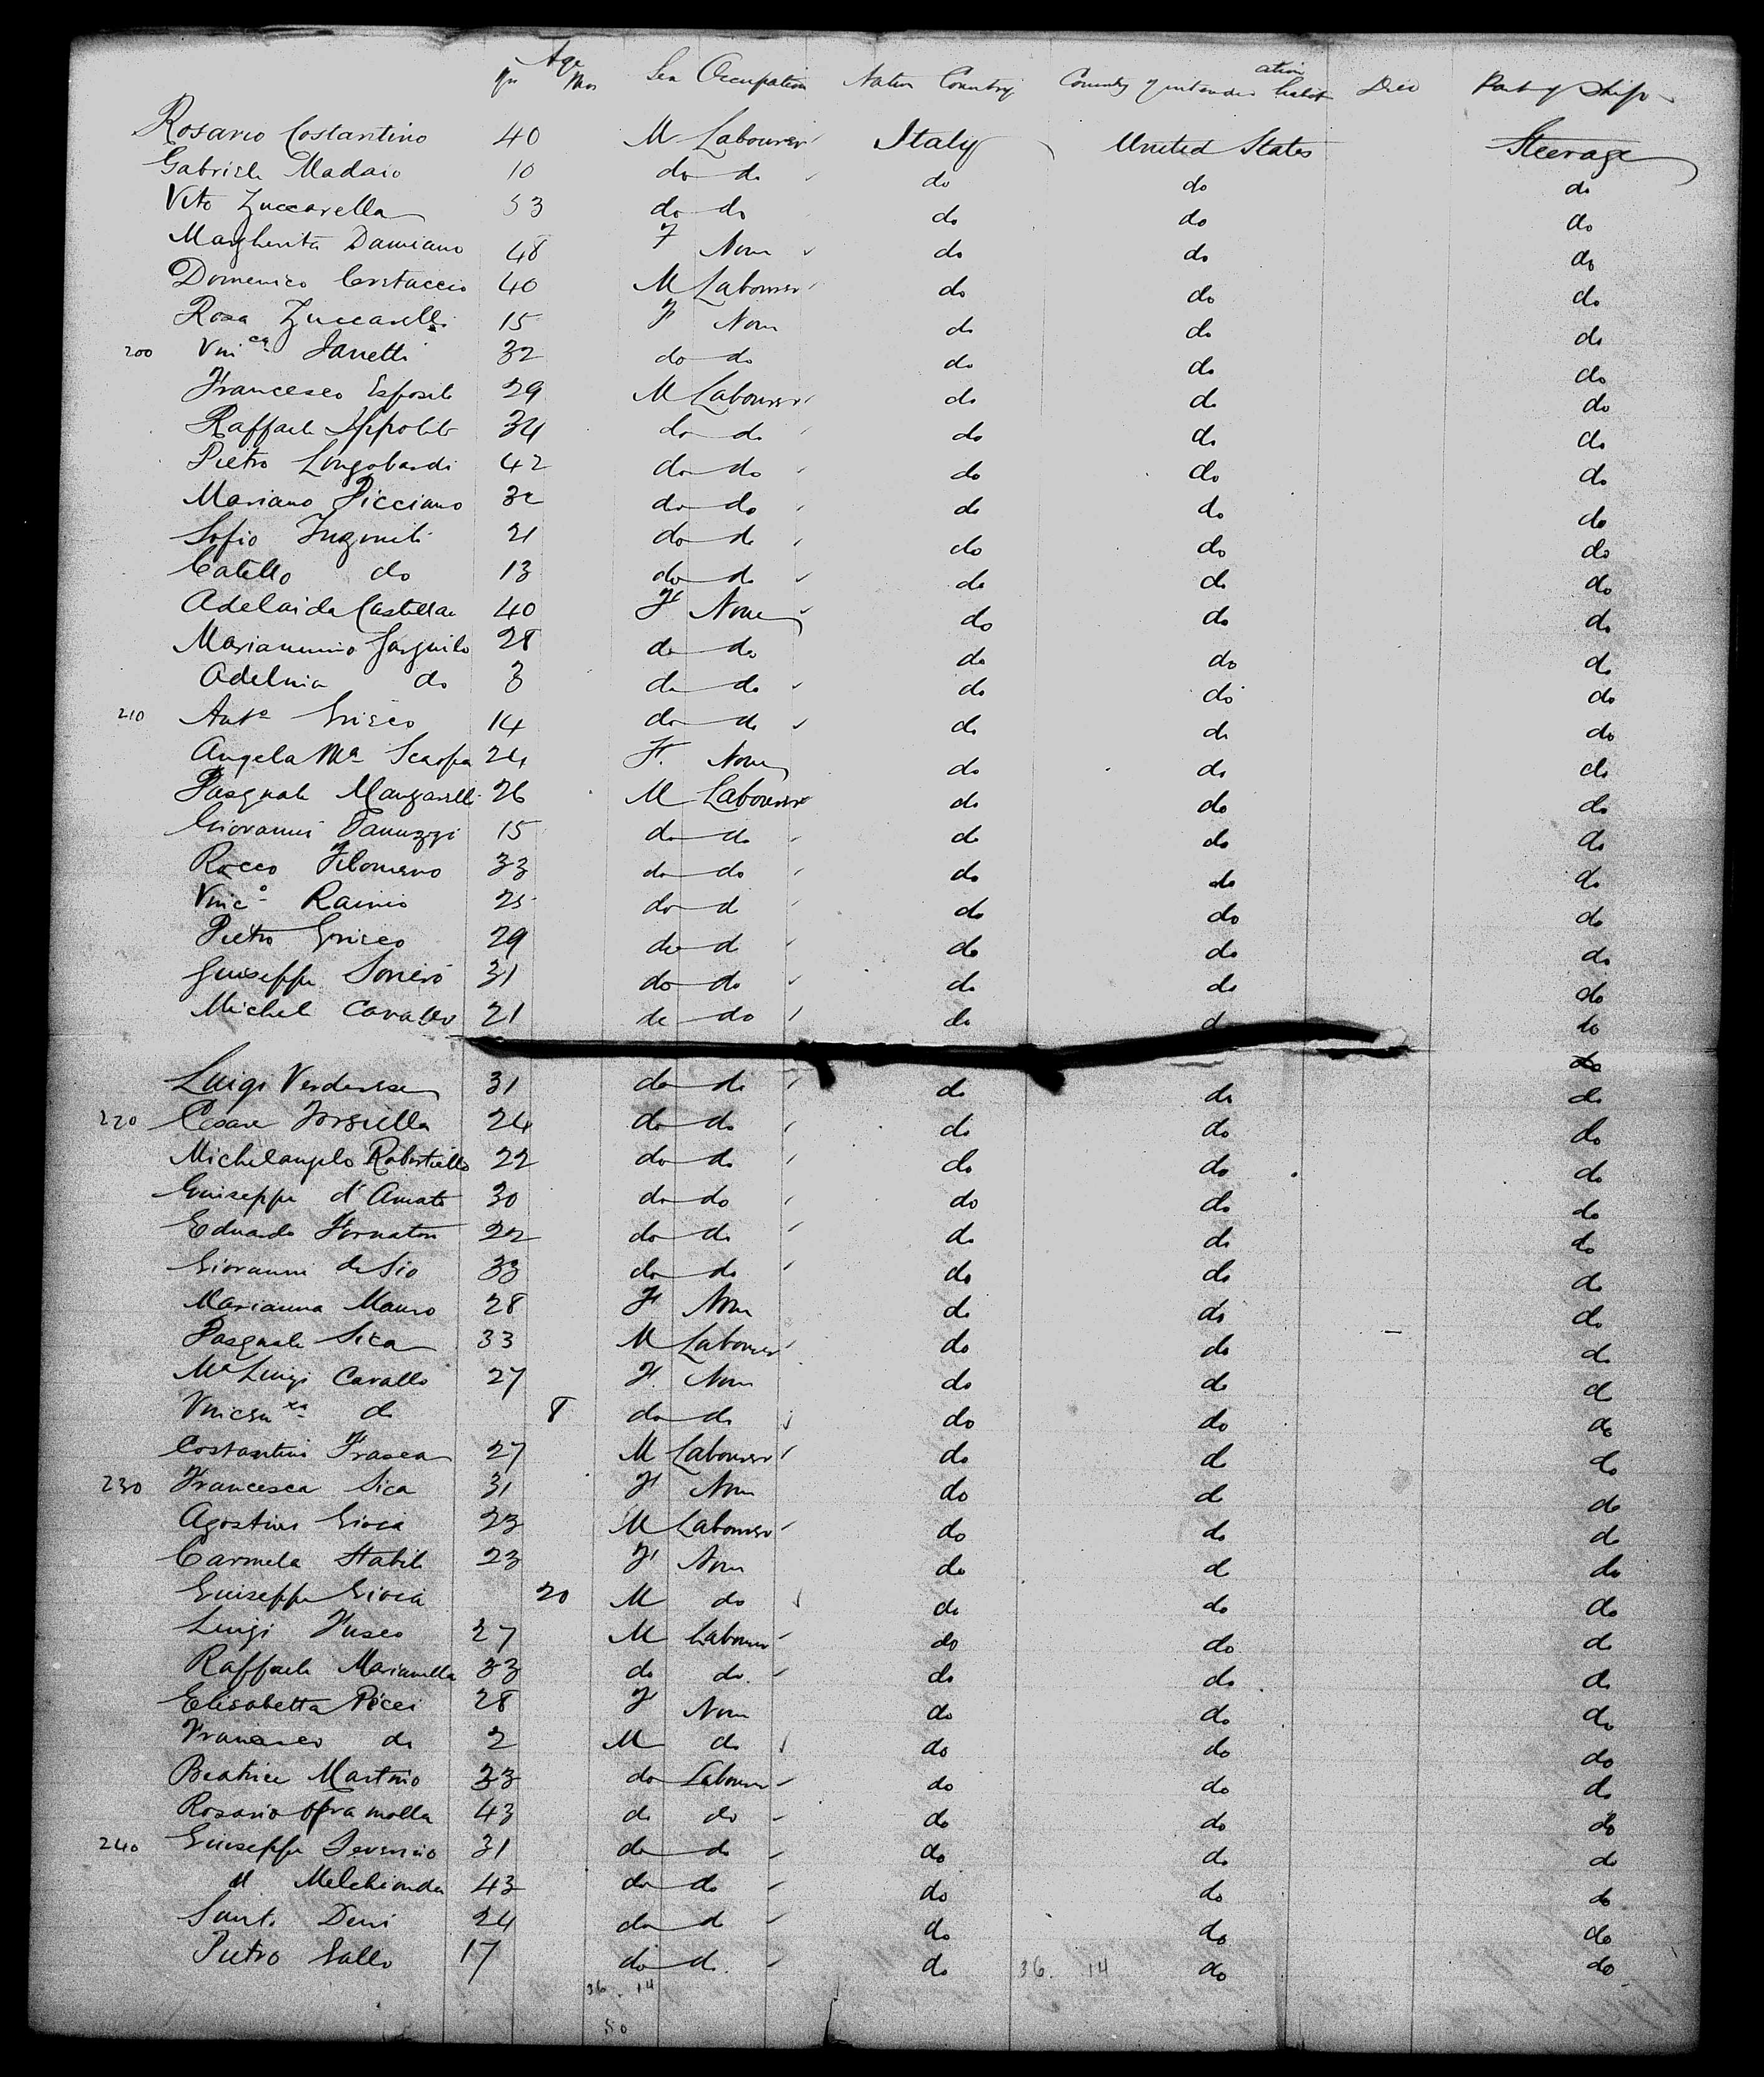 Age
Yrs Mos Sex Occupation Native Country Country of intended habitation Died Part of Ship
Rosario Costantino 40 M Labourer Italy United States Steerage
Gabriele Madaio 10 do do do do do
Vito Zuccarella 53 do do do do do
Margherita Damiano 48 F None do do do
Domenico Cristaccio 40 M Labourer do do do
Rosa Zuccarelli 15 F None do do do
200 Vin ca Iannetti 32 do do do do do
Francesco Esposito 29 M Labourer do do do
Raffaele Ippolito 34 do do do do do
Pietro Longobardi 42 do do do do do
Mariano Picciano 32 do do do do do
Sofio 21 do do do do do
Catello do 13 do do do do do
Adelaida Castellan 40 F None do do do
28 do do do do do
do 3 do do do do do
210 Anta Grieco 14 do do do do do
Angela Ma Scarpa 24 F. None do do do
Pasquale Manganelli 26 M Labourer do do do
Giovanni Tanuzzi 15 do do do do do
Rocco Filomeno 33 do do do do do
Vinco Rainio 25 do do do do do
Pietro Grieco 29 do do do do do
Guiseppe 31 do do do do do
Michele Cavallo 21 do do do do do
do
Luigi Verderese 31 do do do do do
220 Cesare Torsiella 24 do do do do do
Michelangelo Robertiello 22 do do do do do
Guiseppe d'Amato 30 do do do do do
Eduardo Fornatore 22 do do do do do
Giovanni de Sio 33 do do do do do
Marianna Mauro 28 F None do do do
Pasquale Sica 33 M Labourer do do do
Ma Luigi Cavallo 27 F. None do do do
do 8 do do do do do
Costantini Frasca 27 M Labourer do do do
230 Francesca Sica 31 F None do do do
Agostino Gioia 23 M Labourer do do do
Carmela Stabile 23 F None do do do
Guiseppe Gioia 20 M do do do do
Luigi Fusco 27 M Labourer do do do
Raffaele Marianella 33 do do do do do
Elisabetta Picci 28 F None do do do
Francesco do 2 M do do do do
Beatrice Martino 23 do Labourer do do do
Rosario 43 do do do do do
240 Guiseppe Severino 31 do do do do do
d Melchionda 43 do do do do do
Santo Deni 24 do do do do do
Pietro Gallo 17 do do do do do
36. 14
36. 14
50